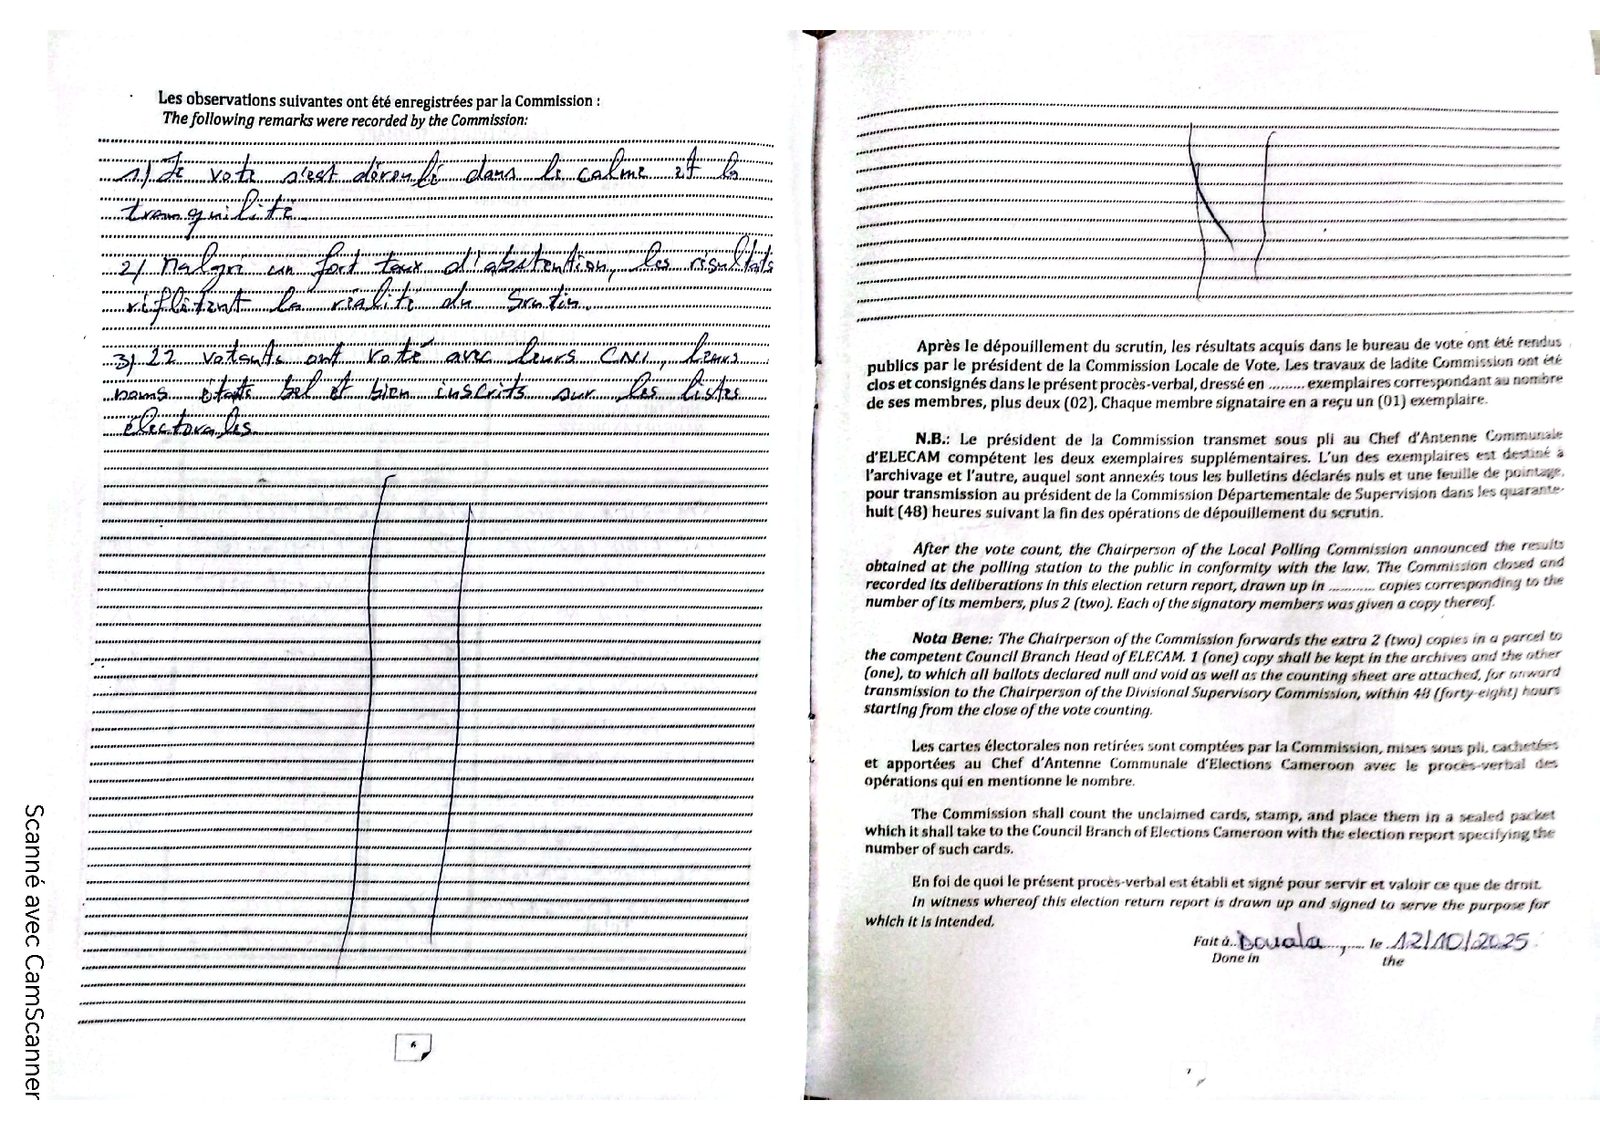 Les observations suivantes ont été enregistrées par la Commission :
The following remarks were recorded by the Commission:
1) Le vote s'est déroulé dans le calme et la
tranquilité.
2) Malgré un fort taux d'abstention, les résultats
réflètent la réalité du Srutin.
3) 22 votants ont voté avec leurs CNI, leurs
noms étants bel et bien inscrits sur les listes
électorales.
6
Scanné avec CamScanner
Après le dépouillement du scrutin, les résultats acquis dans le bureau de vote ont été rendus
publics par le président de la Commission Locale de Vote. Les travaux de ladite Commission ont été
clos et consignés dans le présent procès-verbal, dressé en ......... exemplaires correspondant au nombre
de ses membres, plus deux (02). Chaque membre signataire en a reçu un (01) exemplaire.
N.B.: Le président de la Commission transmet sous pli au Chef d'Antenne Communale
d'ELECAM compétent les deux exemplaires supplémentaires. L'un des exemplaires est destiné à
l'archivage et l'autre, auquel sont annexés tous les bulletins déclarés nuls et une feuille de pointage,
pour transmission au président de la Commission Départementale de Supervision dans les quarante-
huit (48) heures suivant la fin des opérations de dépouillement du scrutin.
After the vote count, the Chairperson of the Local Polling Commission announced the results
obtained at the polling station to the public in conformity with the law. The Commission closed and
recorded its deliberations in this election return report, drawn up in ........... copies corresponding to the
number of its members, plus 2 (two). Each of the signatory members was given a copy thereof.
Nota Bene: The Chairperson of the Commission forwards the extra 2 (two) copies in a parcel to
the competent Council Branch Head of ELECAM. 1 (one) copy shall be kept in the archives and the other
(one), to which all ballots declared null and void as well as the counting sheet are attached, for onward
transmission to the Chairperson of the Divisional Supervisory Commission, within 48 (forty-eight) hours
starting from the close of the vote counting.
Les cartes électorales non retirées sont comptées par la Commission, mises sous pli, cachetées
et apportées au Chef d'Antenne Communale d'Elections Cameroon avec le procès-verbal des
opérations qui en mentionne le nombre.
The Commission shall count the unclaimed cards, stamp, and place them in a sealed packet
which it shall take to the Council Branch of Elections Cameroon with the election report specifying the
number of such cards.
En foi de quoi le présent procès-verbal est établi et signé pour servir et valoir ce que de droit.
In witness whereof this election return report is drawn up and signed to serve the purpose for
which it is intended.
Fait à Douala, le 12/10/2025
Done in the
7